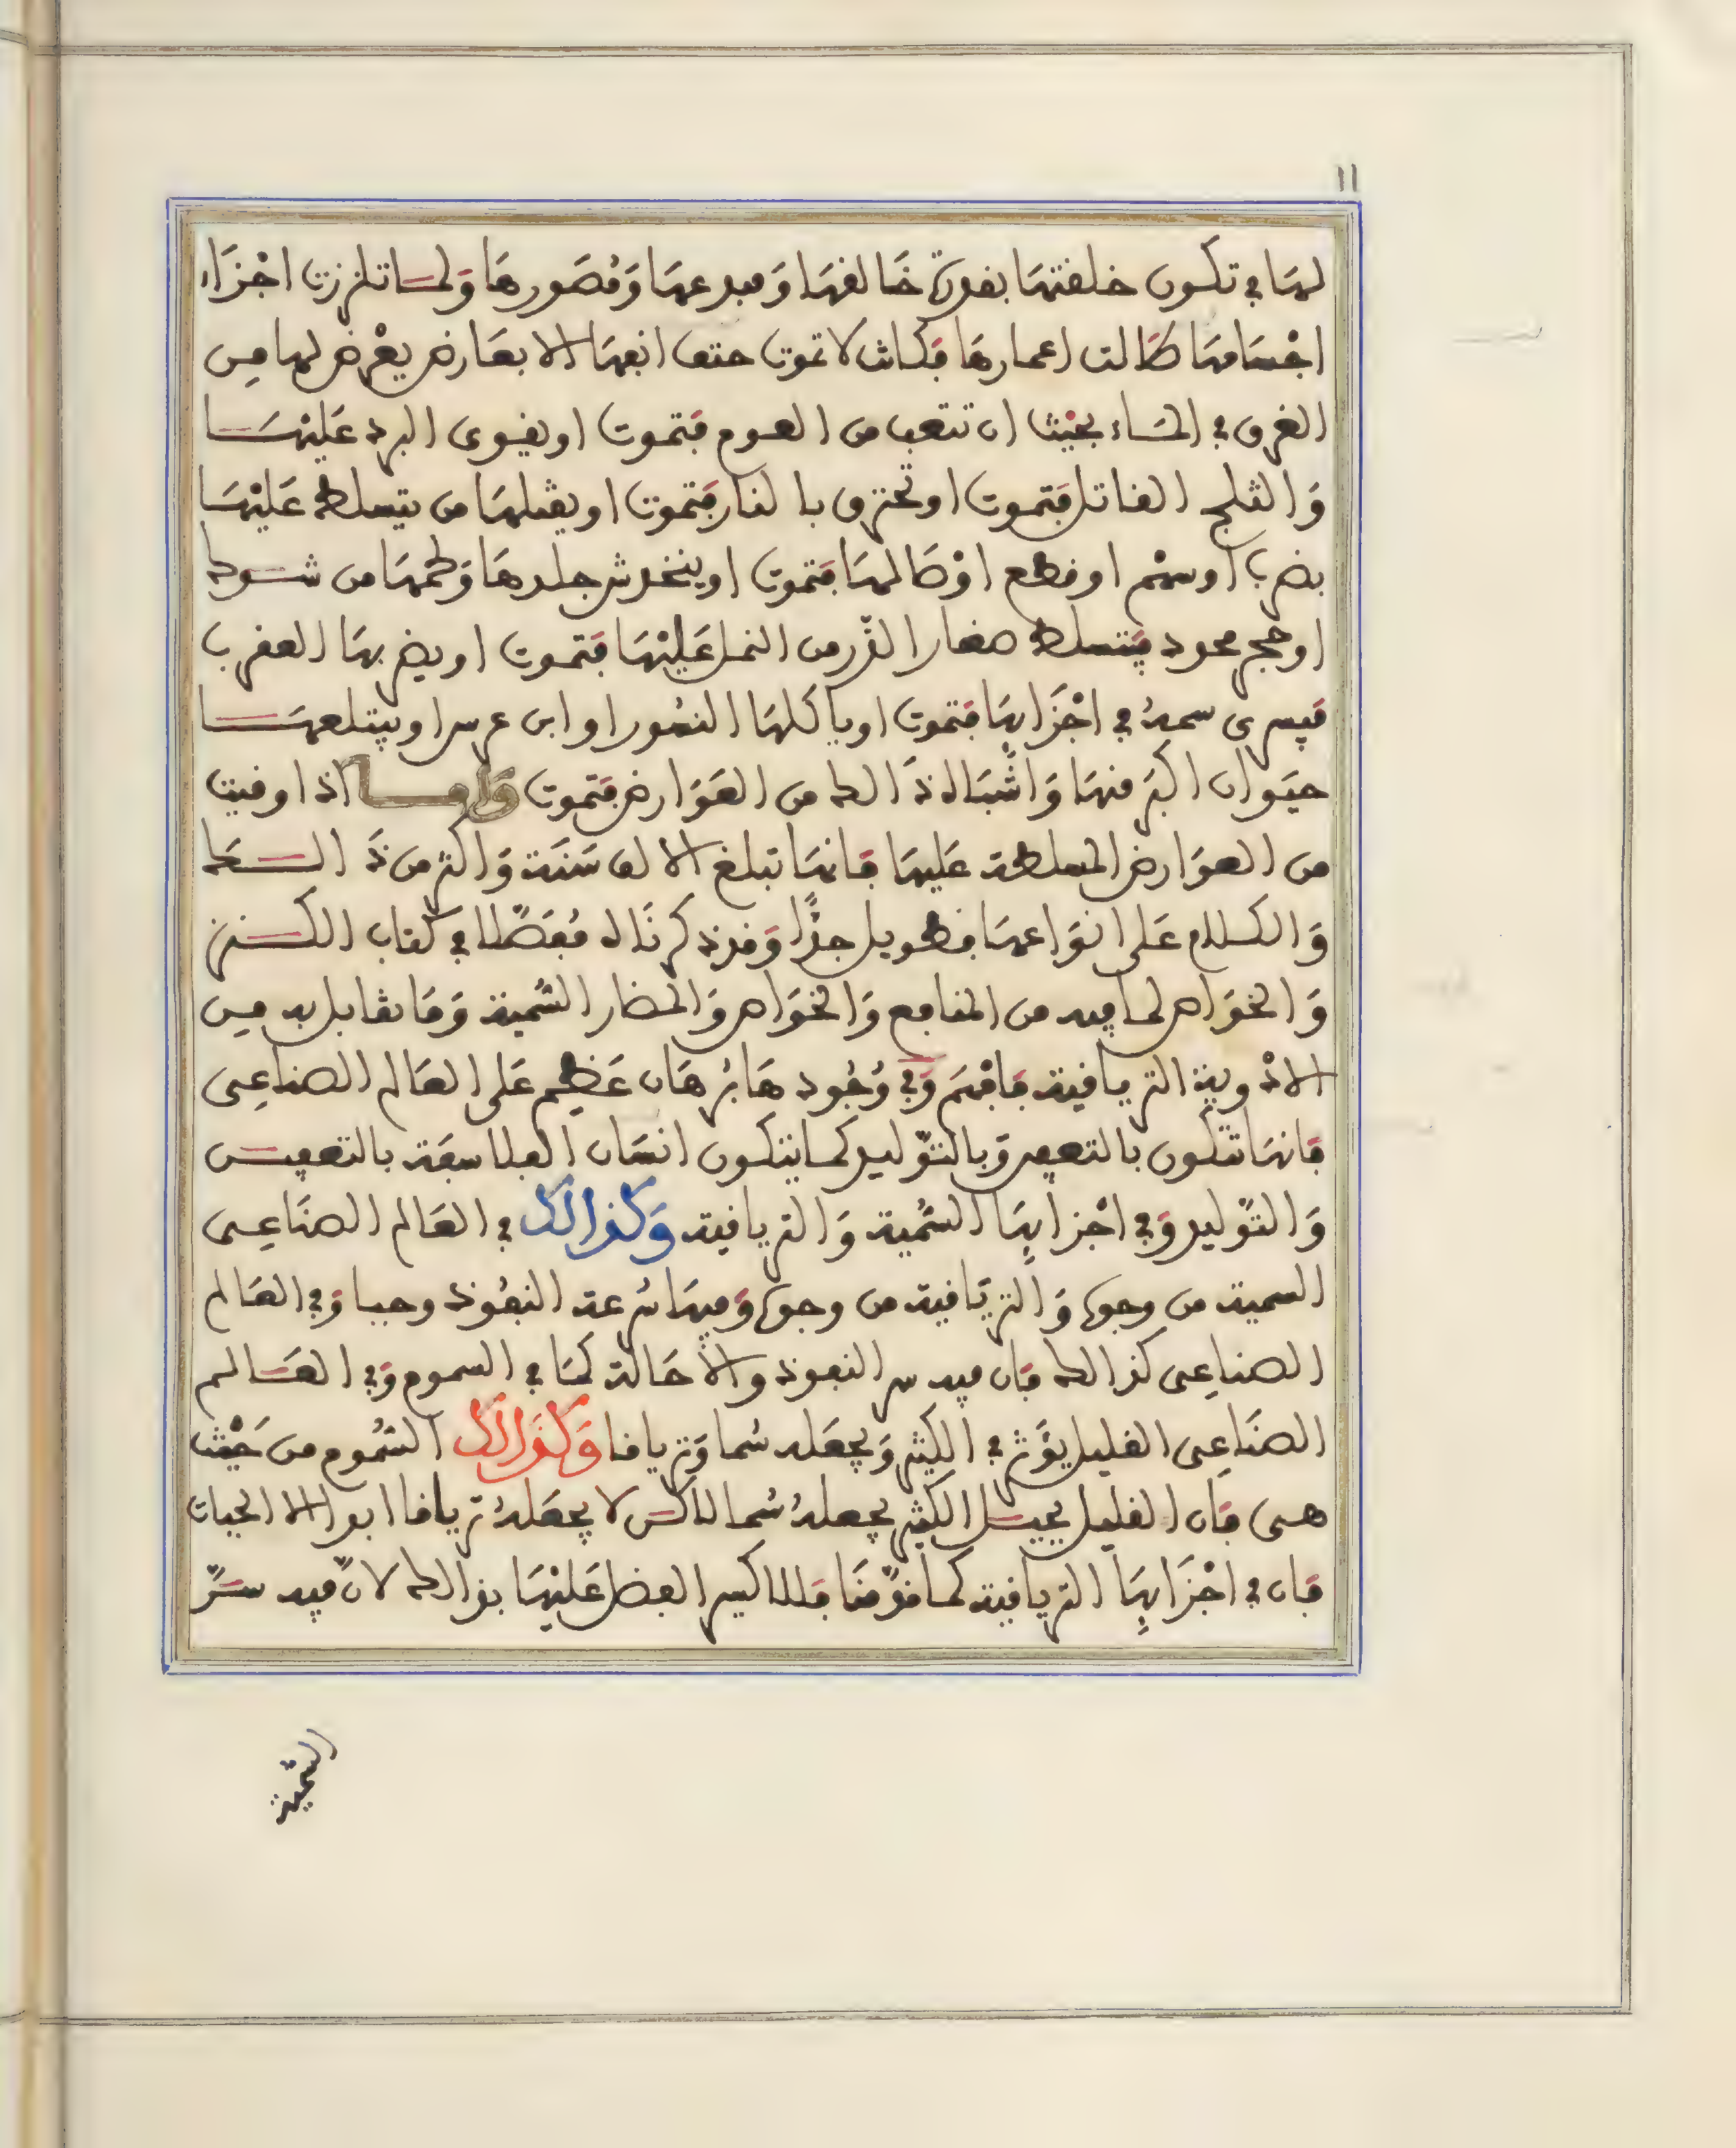 ١١
لها في تكون خلقتها بقدرة خالقها ومبدعها ومصورها ولما تلززت اجزاء
اجسامها طالت اعمارها فكانت لا تموت حتف انفها الا بعارض يعرض لها من
الغرق في الماء بحيث ان تتعب من العوم فتموت او يقوى البرد عليها
والثلج القاتل فتموت او تحترق بالنار فتموت او يقتلها من يتسلط عليها
بضرب او سهم او قطع اوصالها فتموت او ينخدش جلدها ولحمها من شوك
او حجر محدد فيتسلط صغار الذر من النمل عليها فتموت او يضربها العقرب
فيسرى سمه في اجزايها فتموت او ياكلها النمور او ابن عرس او يبتلعها
حيوان اكبر منها واشباه ذالك من العوارض فتموت واما اذا وقيت
من العوارض المسلطة عليها فانها تبلغ الالف سنة واكثر من ذالك
والكلام على انواعها فطويل جدا وقد ذكرناه مفصلا في كتاب الكنز
والخواص لما فيه من المنافع والخواص والمضار السمية وما يقابل به من
الادوية الترياقية فافهم وفي وجودها برهان عظيم على العالم الصناعى
فانها تتكون بالتعفين وبالتوليد كما يتكون انسان الفلاسفة بالتعفين
والتوليد وفي اجزايها السمية والترياقية وكذالك في العالم الصناعى
السمية من وجوه والترياقية من وجوه وفيها سرعة النفوذ وحيا وفي العالم
الصناعى كذالك فان فيه سر النفوذ والاحالة كما في السموم وفي العالم
الصناعى القليل يؤثر في الكثير ويجعله سما وترياقا وكذالك السموم من حيث
هى فان القليل يحيل الكثير يجعله سما لاكن لا يجعله ترياقا ابدا الا الحيات
فان في اجزايها الترياقية كما قدمنا فللاكسير الفضل عليها بذالك لان فيه سر
السمية